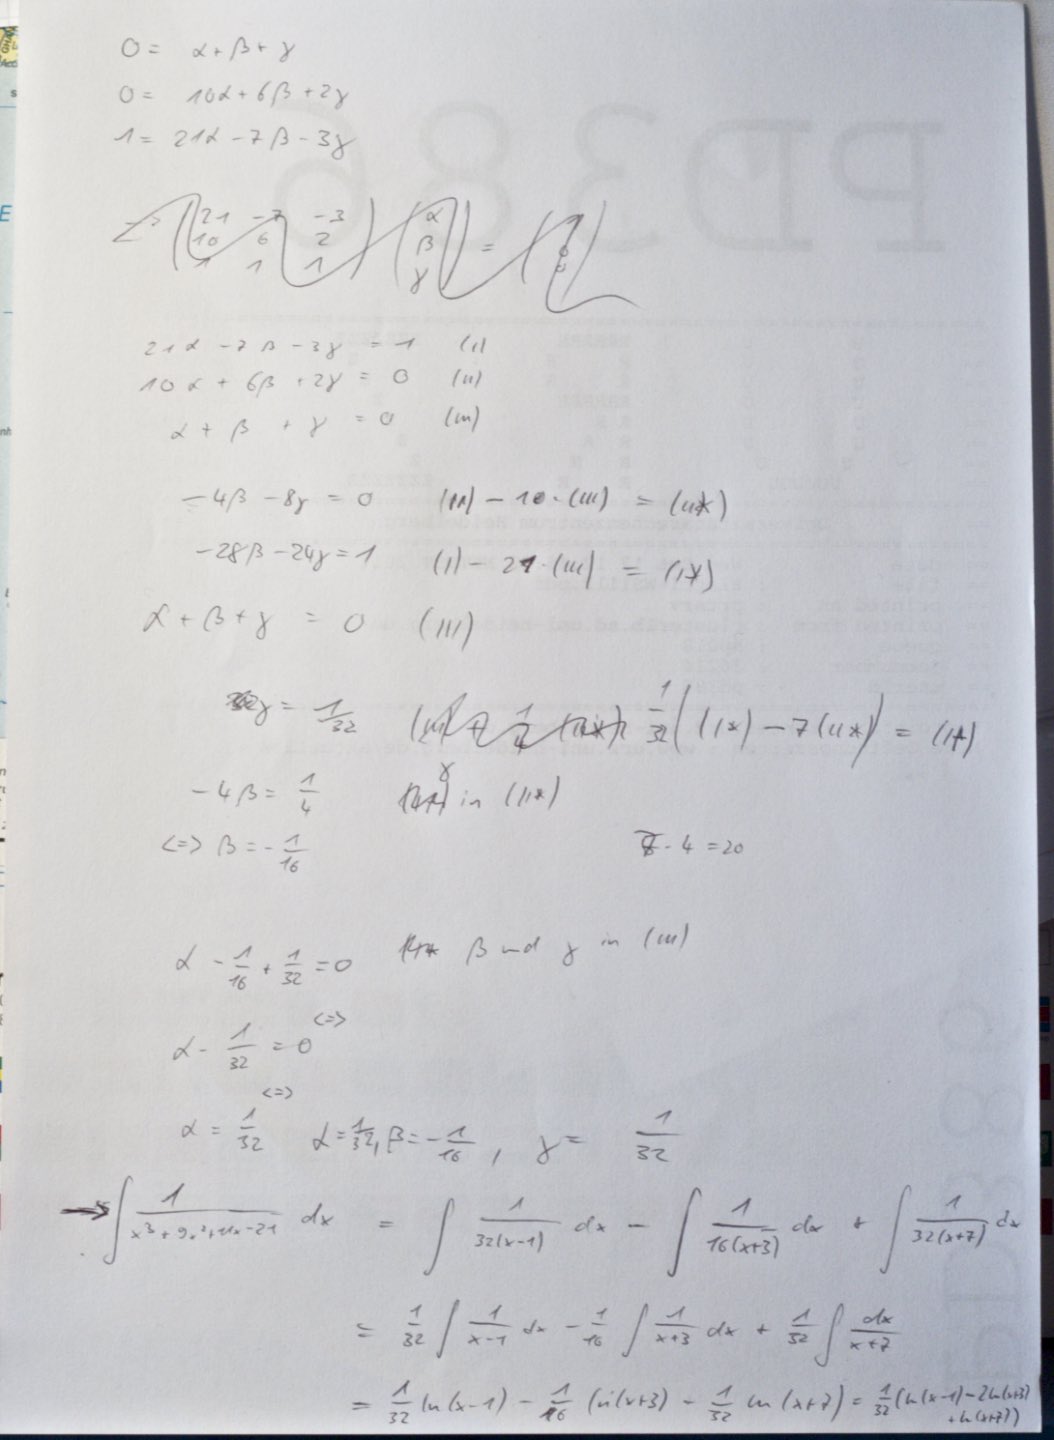 0 = α + β + γ
0 = 10α + 6β + 2γ
1 = 21α - 7β - 3γ
21 -7 -3 α 1
10 6 2 β = 0
1 1 1 γ 0
21α - 7β - 3γ = 1 (I)
10α + 6β + 2γ = 0 (II)
α + β + γ = 0 (III)
-4β - 8γ = 0 (II) - 10·(III) = (II*)
-28β - 24γ = 1 (I) - 21·(III) = (I*)
α + β + γ = 0 (III)
γ = 1/32 1/32 ((I*) - 7(II*)) = (I*)
-4β = 1/4 γ in (II*)
<=> β = -1/16 7-4=20
α - 1/16 + 1/32 = 0 β und γ in (III)
<=>
α - 1/32 = 0
<=>
α = 1/32 α = 1/32, β = -1/16, γ = 1/32
→ ∫ 1/(x³+9x²+11x-21) dx = ∫ 1/(32(x-1)) dx - ∫ 1/(16(x+3)) dx + ∫ 1/(32(x+7)) dx
= 1/32 ∫ 1/(x-1) dx - 1/16 ∫ 1/(x+3) dx + 1/32 ∫ dx/(x+7)
= 1/32 ln(x-1) - 1/16 ln(x+3) - 1/32 ln(x+7) = 1/32 (ln(x-1) - 2ln(x+3)
+ ln(x+7))